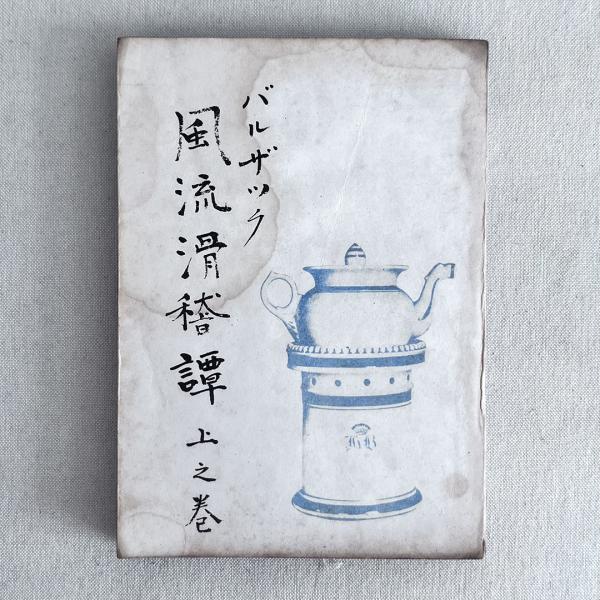 バルザック
風流滑稽譚 上之巻
HB